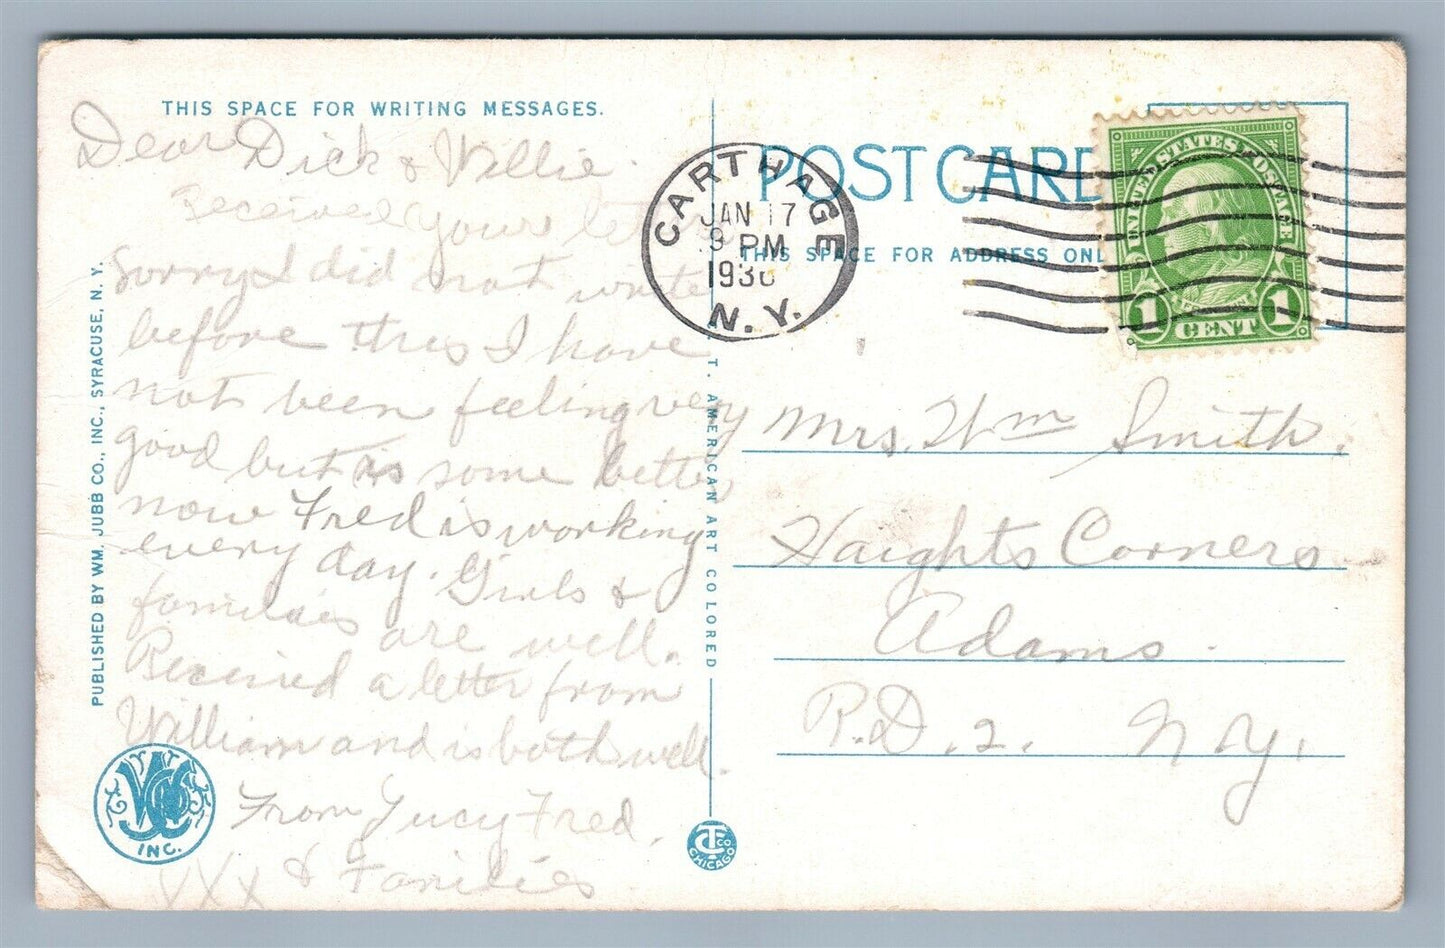 THIS SPACE FOR WRITING MESSAGES.
Dear Dick & Willie
Received your letter
Sorry I did not write
before this I have
not been feeling very
good but is some better
now Fred is working
every day. Girls &
families are well.
Received a letter from
William and is both well.
From Lucy Fred.
XXX & Families
PUBLISHED BY WM. JUBB CO., INC., SYRACUSE, N. Y.
INC.
T. AMERICAN ART COLORED
CT CO
CHICAGO
CARTHAGE
JAN 17
9 PM
N.Y.
POST CARD
THIS SPACE FOR ADDRESS ONL
UNITED STATES POSTAGE
FRANKLIN
1 CENT 1
Mrs. Wm Smith.
Haights Corners
Adams.
R.D. 2. N Y.